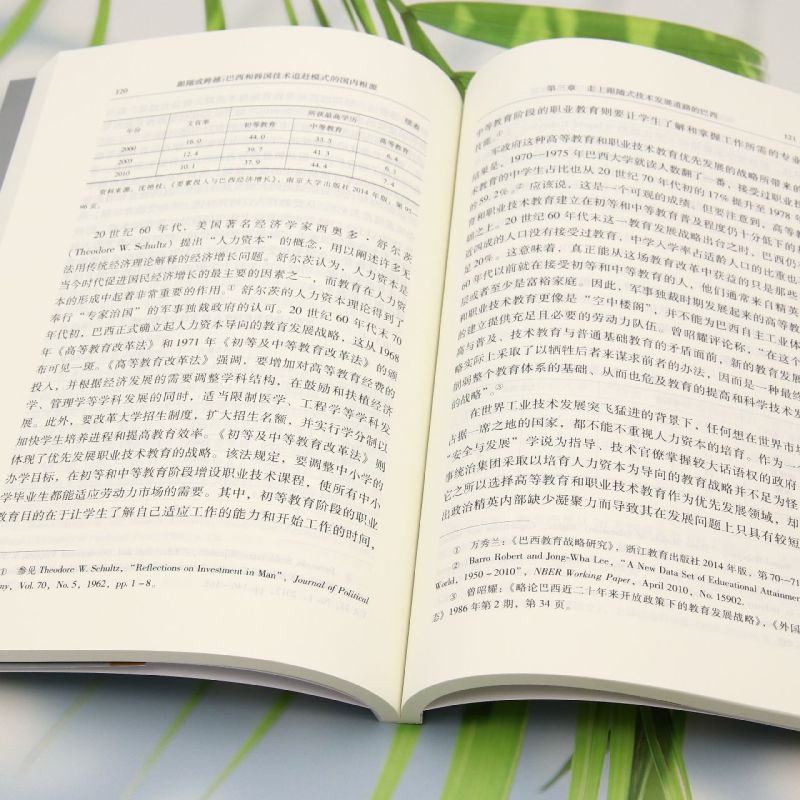 120 跟随或跨越：巴西和韩国技术追赶模式的国内根源
续表
年份 文盲率 所获最高学历
初等教育 中等教育 高等教育
2000 16.0 44.0 33.5 6.4
2005 12.4 39.7 41.3 6.3
2010 10.1 37.9 44.4 7.4
资料来源：沈艳枝：《要素投入与巴西经济增长》，南京大学出版社2014年版，第95—
96页。
20世纪60年代，美国著名经济学家西奥多·舒尔茨
（Theodore W. Schultz）提出“人力资本”的概念，用以阐述许多无
法用传统经济理论解释的经济增长问题。舒尔茨认为，人力资本是
当今时代促进国民经济增长的最主要的因素之一，而教育在人力资
本的形成中起着非常重要的作用。①舒尔茨的人力资本理论得到了
奉行“专家治国”的军事独裁政府的认可。20世纪60年代末70
年代初，巴西正式确立起人力资本导向的教育发展战略，这从1968
年《高等教育改革法》和1971年《初等及中等教育改革法》的颁
布可见一斑。《高等教育改革法》强调，要增加对高等教育经费的
投入，并根据经济发展的需要调整学科结构，在鼓励和扶植经济
学、管理学等学科发展的同时，适当限制医学、工程学等学科发
展。此外，要改革大学招生制度，扩大招生名额，并实行学分制以
加快学生培养进程和提高教育效率。《初等及中等教育改革法》则
体现了优先发展职业技术教育的战略。该法规定，要调整中小学的
办学目标，在初等和中等教育阶段增设职业技术课程，使所有中小
学毕业生都能适应劳动力市场的需要。其中，初等教育阶段的职业
教育目的在于让学生了解自己适应工作的能力和开始工作的时间，
① 参见Theodore W. Schultz, “Reflections on Investment in Man”, Journal of Political
ny, Vol. 70, No. 5, 1962, pp. 1-8。
第三章 走上跟随式技术发展道路的巴西 121
中等教育阶段的职业教育则要让学生了解和掌握工作所需的专业
技能。①
军政府这种高等教育和职业技术教育优先发展的战略所带来的
结果是，1970—1975年巴西大学就读人数翻了一番，接受过职业技
术教育的中学生占比也从20世纪70年代初的17%提升至1978年
的59.2%。②应该说，这是一个可观的成绩。但要注意到，高等教
育和职业技术教育建立在初等和中等教育普及程度仍十分低下的基
础之上。20世纪60年代末这一教育发展战略出台之时，巴西仍
近四成的人口没有接受过教育，中学入学率占适龄人口的比重也
足20%。这意味着，真正能从这场教育改革中获益的只是那些
60年代以前就在接受初等和中等教育的人，他们通常来自精英
层或者至少是富裕家庭。因此，军事独裁时期发展起来的高等教
和职业技术教育更像是“空中楼阁”，并不能为巴西自主工业体
的建立提供充足且必要的劳动力队伍。曾昭耀评论称，“在这个
高与普及、技术教育与普通基础教育的矛盾面前，新的教育发展
略实际上采取了以牺牲后者来谋求前者的办法，因而是一种最终
削弱整个教育体系的基础、从而也危及教育的提高和科学技术发
的战略”。③
在世界工业技术发展突飞猛进的背景下，任何想在世界市场
占据一席之地的国家，都不能不重视人力资本的培育。作为一个
“安全与发展”学说为指导、技术官僚掌握较大话语权的政府，
事统治集团采取以培育人力资本为导向的教育战略并不足为怪
它之所以选择高等教育和职业技术教育作为优先发展领域，却
出政治精英内部缺少凝聚力而导致其在发展问题上只具有较短
① 万秀兰：《巴西教育战略研究》，浙江教育出版社2014年版，第70—71
② Barro Robert and Jong-Wha Lee, “A New Data Set of Educational Attainmen
World, 1950-2010”, NBER Working Paper, April 2010, No. 15902.
③ 曾昭耀：《略论巴西近二十年来开放政策下的教育发展战略》，《外国
态》1986年第2期，第34页。